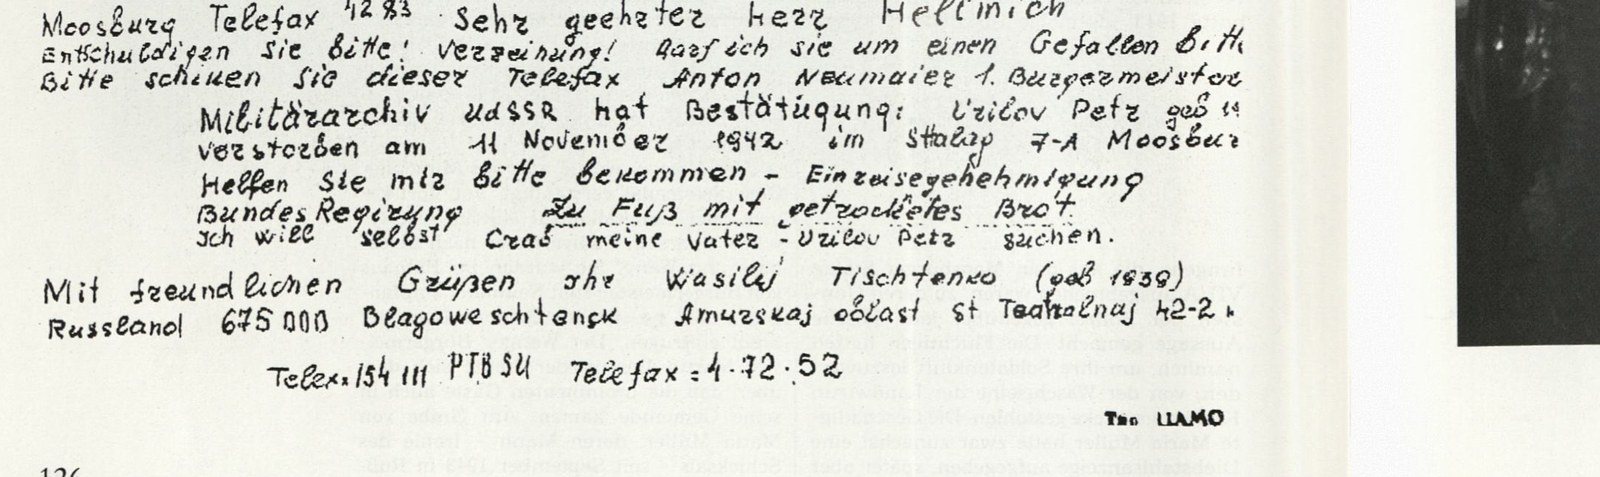 Moosburg Telefax 4283 Sehr geehrter Herr Hellmich
Entschuldigen Sie Bitte! Verzeihung! Darf ich sie um einen Gefallen Bitte
Bitte schiken Sie dieser Telefax Anton Neumaier 1. Burgermeister
Militärarchiv UdSSR hat Bestätugung: Urilov Petr geb
verstorben am 11 November 1942 im Stalag 7-A Moosbur
Helfen Sie mir Bitte bekommen - Einreisegehehmigung
Bundes Regirung Zu Fuß mit getrocketes Brot.
Ich will selbst Grab meine Vater - Urilov Petr suchen.
Mit freundlichen Grüßen Ihr Wasilij Tischtenko (geb 1939)
Russland 675000 Blagoweschtensk Amurskaj oblast st Teatralnaj 42-2
Telex: 154111 PTB SU Telefax: 4.72.52
126